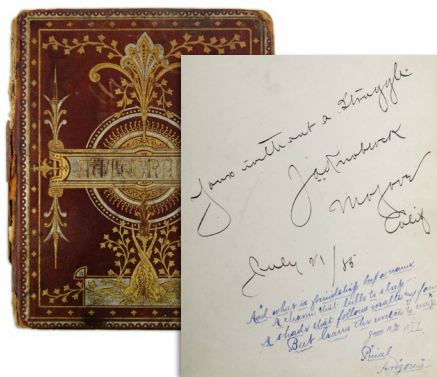 AUTOGRA
Yours without a Struggle
Jas
Mojove
Calif
July 21/85
And what is friendship but a name
A charm that lulls to sleep
A shade that follows wealth or fame
But leaves the wretch to weep
Pinal
Arizona